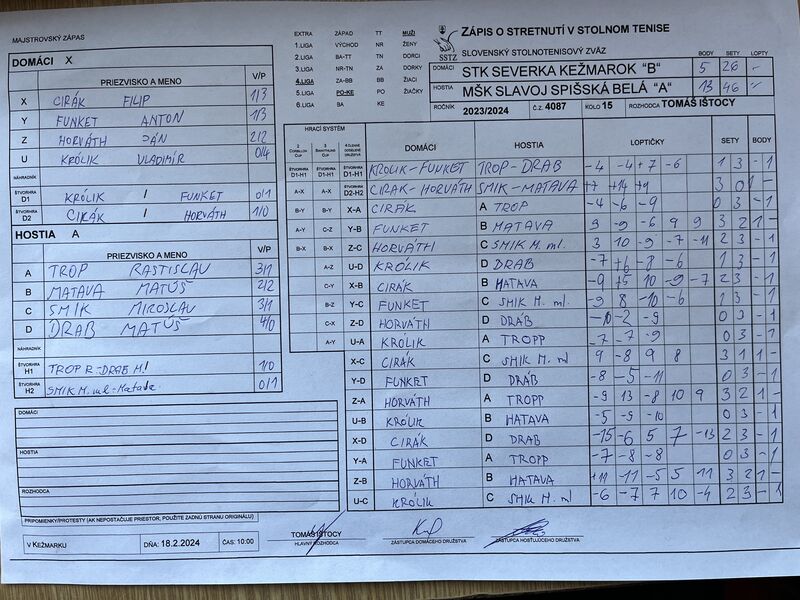 MAJSTROVSKÝ ZÁPAS
EXTRA ZÁPAD TT MUŽI
1.LIGA VÝCHOD NR ŽENY
2.LIGA BA-TT TN DORCI
3.LIGA NR-TN ZA DORKY
4.LIGA ZA-BB BB ŽIACI
5.LIGA PO-KE PO ŽIAČKY
6.LIGA BA KE
SSTZ
ZÁPIS O STRETNUTÍ V STOLNOM TENISE
SLOVENSKÝ STOLNOTENISOVÝ ZVÄZ
BODY SETY LOPTY
DOMÁCI STK SEVERKA KEŽMAROK "B" 5 26
HOSTIA MŠK SLAVOJ SPIŠSKÁ BELÁ "A" 13 46
ROČNÍK 2023/2024 Č.Z. 4087 KOLO 15 ROZHODCA TOMÁŠ IŠTOCY
DOMÁCI X
PRIEZVISKO A MENO V/P
X CIRÁK FILIP 1/3
Y FUNKET ANTON 1/3
Z HORVÁTH JÁN 2/2
U KRÓLIK VLADIMÍR 0/4
NÁHRADNÍK
ŠTVORHRA D1 KRÓLIK / FUNKET 0/1
ŠTVORHRA D2 CIRÁK / HORVÁTH 1/0
HOSTIA A
PRIEZVISKO A MENO V/P
A TROP RASTISLAV 3/1
B MATAVA MATÚŠ 2/2
C SMIK MIROSLAV 3/1
D DRAB MATÚŠ 4/0
NÁHRADNÍK
ŠTVORHRA H1 TROP R-DRAB M. 1/0
ŠTVORHRA H2 SMIK M. ml.-Matava 0/1
DOMÁCI
HOSTIA
ROZHODCA
PRIPOMIENKY/PROTESTY (AK NEPOSTAČUJE PRIESTOR, POUŽITE ZADNÚ STRANU ORIGINÁLU)
HRACÍ SYSTÉM
DOMÁCI HOSTIA LOPTIČKY SETY BODY
ŠTVORHRA D1-H1 ŠTVORHRA D1-H1 ŠTVORHRA D1-H1 KRÓLIK-FUNKET TROP-DRAB -4 -4 +7 -6 1 3 -1
A-X A-X ŠTVORHRA D2-H2 CIRAK-HORVÁTH SMIK-MATAVA +7 +14 +9 3 0 1 -
B-Y B-Y X-A CIRÁK A TROP -4 -6 -9 0 3 -1
A-Y C-Z Y-B FUNKET B MATAVA 9 -9 -6 9 9 3 2 1 -
B-X B-X Z-C HORVÁTH C SMIK M. ml. 3 10 -9 -7 -11 2 3 -1
A-Z U-D KRÓLIK D DRAB -7 +6 -8 -6 1 3 -1
C-Y X-B CIRÁK B MATAVA -9 +5 10 -9 -7 2 3 -1
B-Z Y-C FUNKET C SMIK M. ml. -9 8 -10 -6 1 3 -1
C-X Z-D HORVÁTH D DRÁB -10 -2 -9 0 3 -1
A-Y U-A KRÓLIK A TROPP -7 -7 -9 0 3 -1
X-C CIRÁK C SMIK M. ml 9 -8 9 8 3 1 1 -
Y-D FUNKET D DRÁB -8 -5 -11 0 3 -1
Z-A HORVÁTH A TROPP -9 13 -8 10 9 3 2 1 -
U-B KRÓLIK B MATAVA -5 -9 -10 0 3 -1
X-D CIRÁK D DRAB -15 -6 5 7 -13 2 3 -1
Y-A FUNKET A TROPP -7 -8 -8 0 3 -1
Z-B HORVÁTH B MATAVA +11 -11 -5 5 11 3 2 1 -
U-C KRÓLIK C SMIK M. ml -6 -7 7 10 -4 2 3 -1
V KEŽMARKU DŇA: 18.2.2024 ČAS: 10:00
TOMÁŠ IŠTOCY
HLAVNÝ ROZHODCA ZÁSTUPCA DOMÁCEHO DRUŽSTVA ZÁSTUPCA HOSŤUJÚCEHO DRUŽSTVA